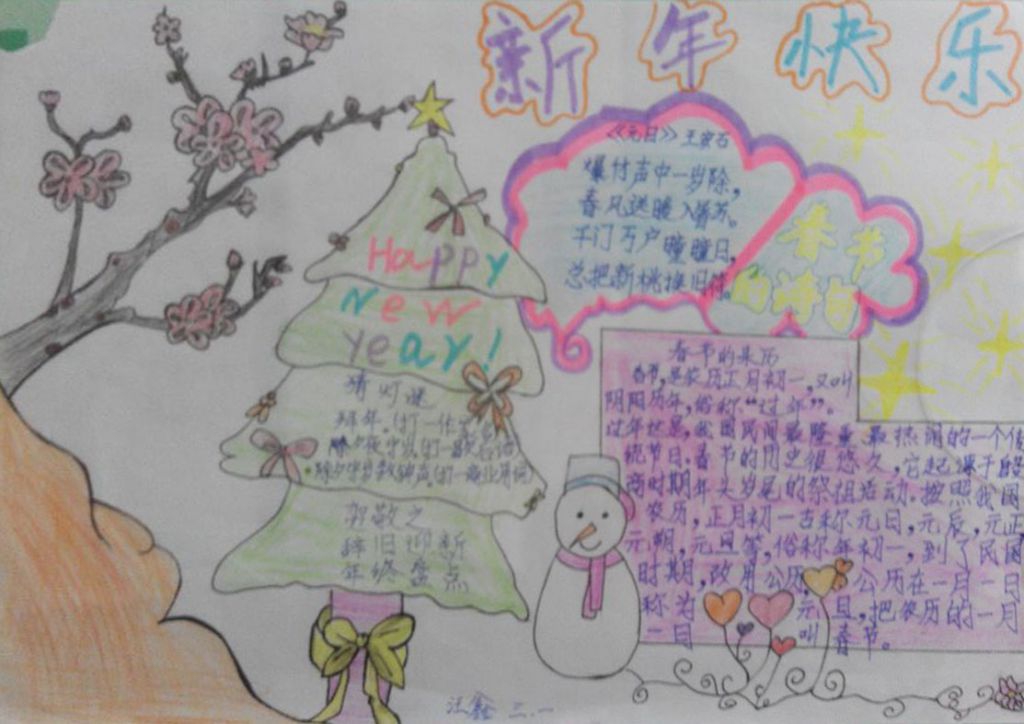 新年快乐
《元日》王安石
爆竹声中一岁除，
春风送暖入屠苏。
千门万户曈曈日，
总把新桃换旧符。
春节
的诗句
Happy
New
Year!
猜灯谜
拜年。(打一
除夕夜守岁(打一
除夕守岁数钟声(打一商业用词)
贺敬之
辞旧迎新
年终盘点
春节的来历
春节,是农历正月初一,又叫
阴历年,俗称“过年”。
过年
我国民间最隆重、最热闹的一个传
统节日。春节的历史很悠久,它起源于殷
商时期年头岁尾的祭祖活动.按照我国
农历,正月初一古称元日,元辰,元正
元朔,元旦等,俗称年初一,到了民国
时期,改用公历,公历在一月一日
称为元旦,把农历的一月
一日叫春节。
汪鑫 三.一